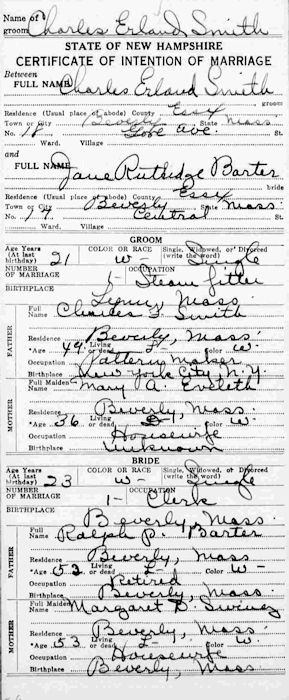 Name of groom Charles Erland Smith
STATE OF NEW HAMPSHIRE
CERTIFICATE OF INTENTION OF MARRIAGE
Between
FULL NAME Charles Erland Smith, groom
Residence (Usual place of abode) County Essex
Town or City Beverly State Mass
No. 18 Gove Ave. St.
Ward. Village
and
FULL NAME Jane Rutlidge Barter
bride
Residence (Usual place of abode) County Essex
Town or City Beverly State Mass.
No. 74 Central St.
Ward. Village
GROOM
Age Years (At last birthday) 21 COLOR OR RACE W Single, Widowed, or Divorced (write the word) Single
NUMBER OF MARRIAGE 1- OCCUPATION Steam fitter
BIRTHPLACE Lynn, Mass.
FATHER
Full Name Charles F. Smith
Residence Beverly, Mass.
*Age 49 Living or dead L Color W.
Occupation Pattern Maker
Birthplace New York City N.Y.
MOTHER
Full Maiden Name Mary A. Eveleth
Residence Beverly, Mass.
*Age 36 Living or dead Color W.
Occupation Housewife
Birthplace Unknown
BRIDE
Age Years (At last birthday) 23 COLOR OR RACE W- Single, Widowed, or Divorced (write the word) Single
NUMBER OF MARRIAGE 1- OCCUPATION Clerk
BIRTHPLACE Beverly, Mass.
FATHER
Full Name Ralph P. Barter
Residence Beverly, Mass
*Age 52 Living or dead L Color W-
Occupation Retired
Birthplace Beverly, Mass.
MOTHER
Full Maiden Name Margaret
Residence Beverly, Mass.
*Age 53 Living or dead L Color W.
Occupation Housewife
Birthplace Beverly, Mass